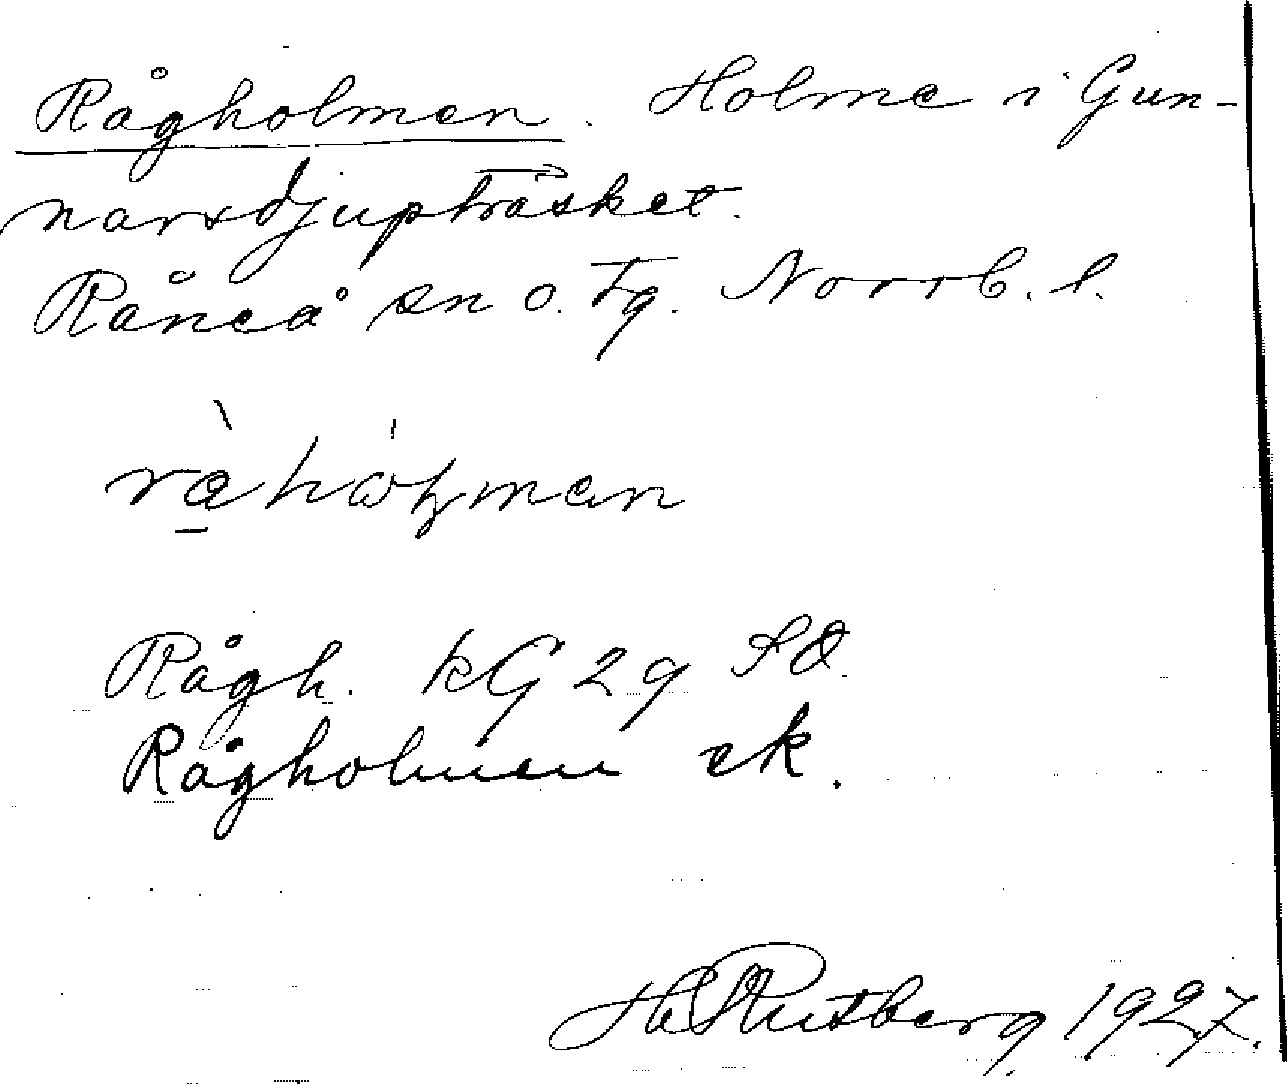 Rågholmen. Holme i Gun-
narsdjupträsket.
Råneå sn o. tg. Norrb. l.
Rågh. kG 29 SO.
Rågholmen ek.
H Rutberg 1927.